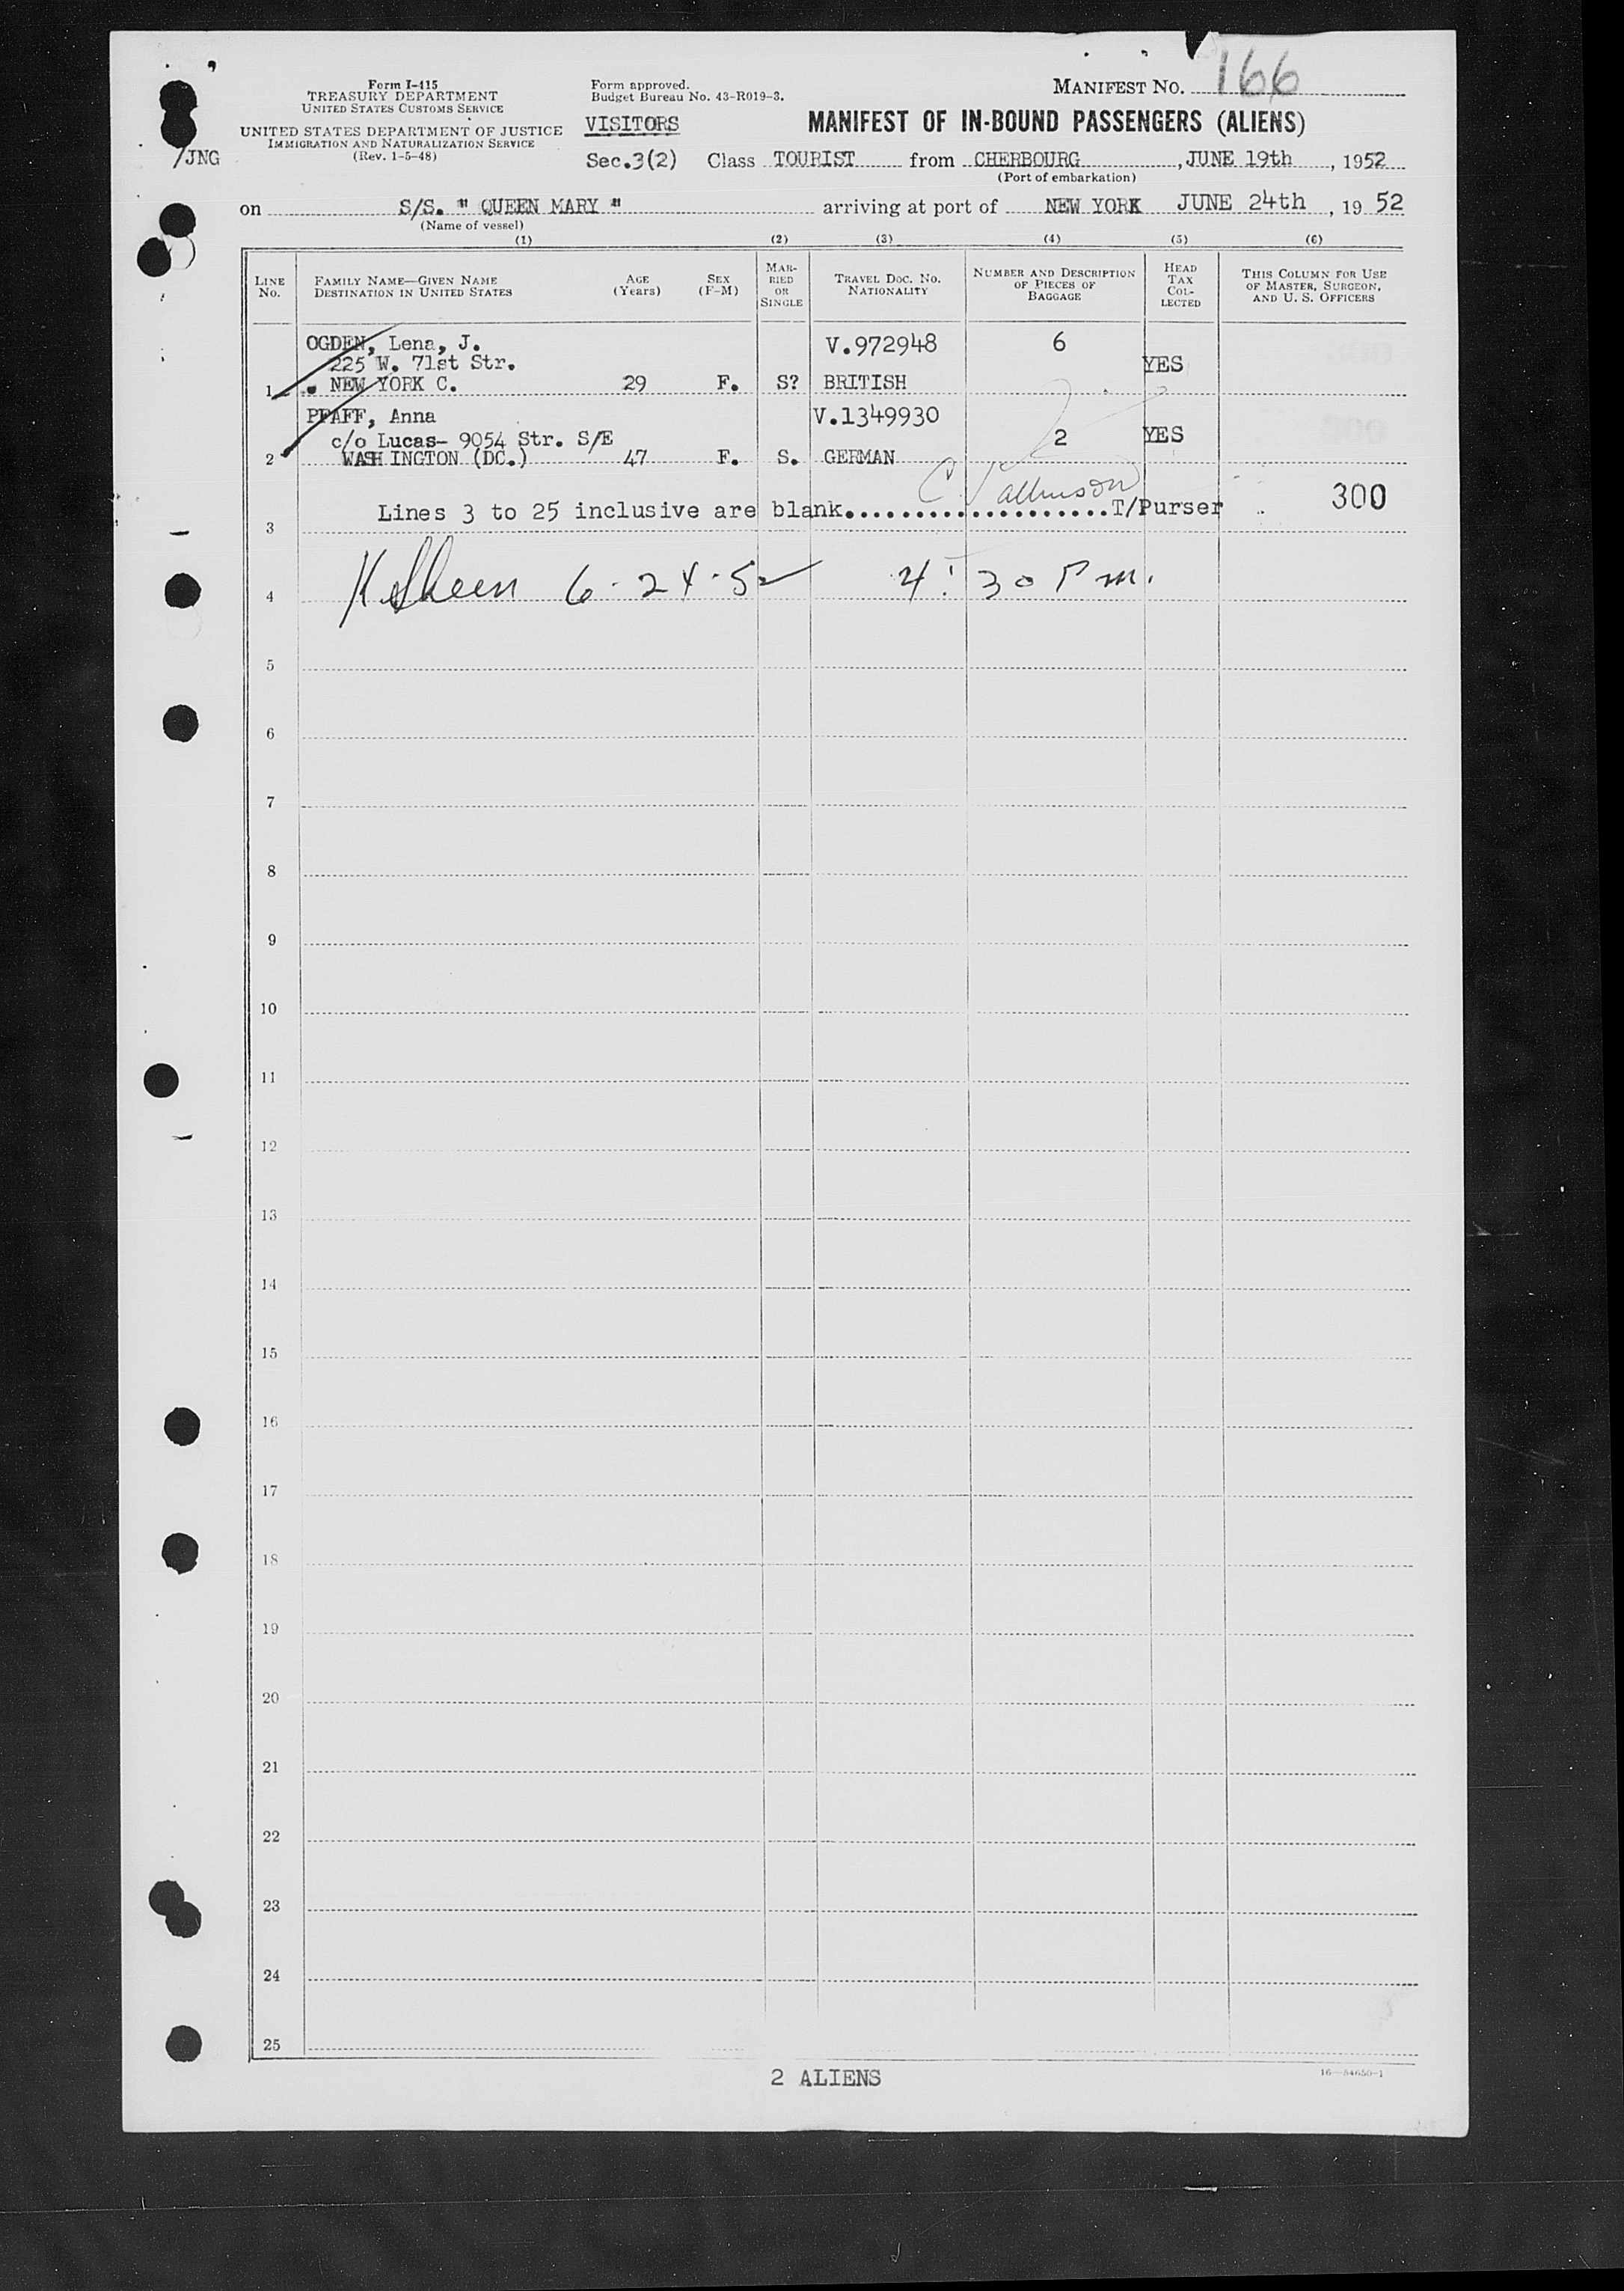 Form I-415
TREASURY DEPARTMENT
UNITED STATES CUSTOMS SERVICE
UNITED STATES DEPARTMENT OF JUSTICE
IMMIGRATION AND NATURALIZATION SERVICE
(Rev. 1-5-48)
/JNG
Form approved.
Budget Bureau No. 43-R019-3.
VISITORS
MANIFEST NO. 166
MANIFEST OF IN-BOUND PASSENGERS (ALIENS)
Sec.3(2) Class TOURIST from CHERBOURG, JUNE 19th, 1952
(Port of embarkation)
on S/S. " QUEEN MARY " arriving at port of NEW YORK JUNE 24th, 19 52
(Name of vessel)
(1) (2) (3) (4) (5) (6)
LINE No.
FAMILY NAME—GIVEN NAME
DESTINATION IN UNITED STATES
AGE (Years)
SEX (F-M)
MARRIED OR SINGLE
TRAVEL DOC. NO.
NATIONALITY
NUMBER AND DESCRIPTION OF PIECES OF BAGGAGE
HEAD TAX COLLECTED
THIS COLUMN FOR USE OF MASTER, SURGEON, AND U. S. OFFICERS
OGDEN, Lena, J. V.972948 6
225 W. 71st Str. YES
1 NEW YORK C. 29 F. S? BRITISH
PFAFF, Anna V.1349930
c/o Lucas- 9054 Str. S/E 2 YES
2 WASHINGTON (DC.) 47 F. S. GERMAN
Lines 3 to 25 inclusive are blank....................T/Purser 300
3
4 6-24-52 4:30 P m.
5
6
7
8
9
10
11
12
13
14
15
16
17
18
19
20
21
22
23
24
25
2 ALIENS